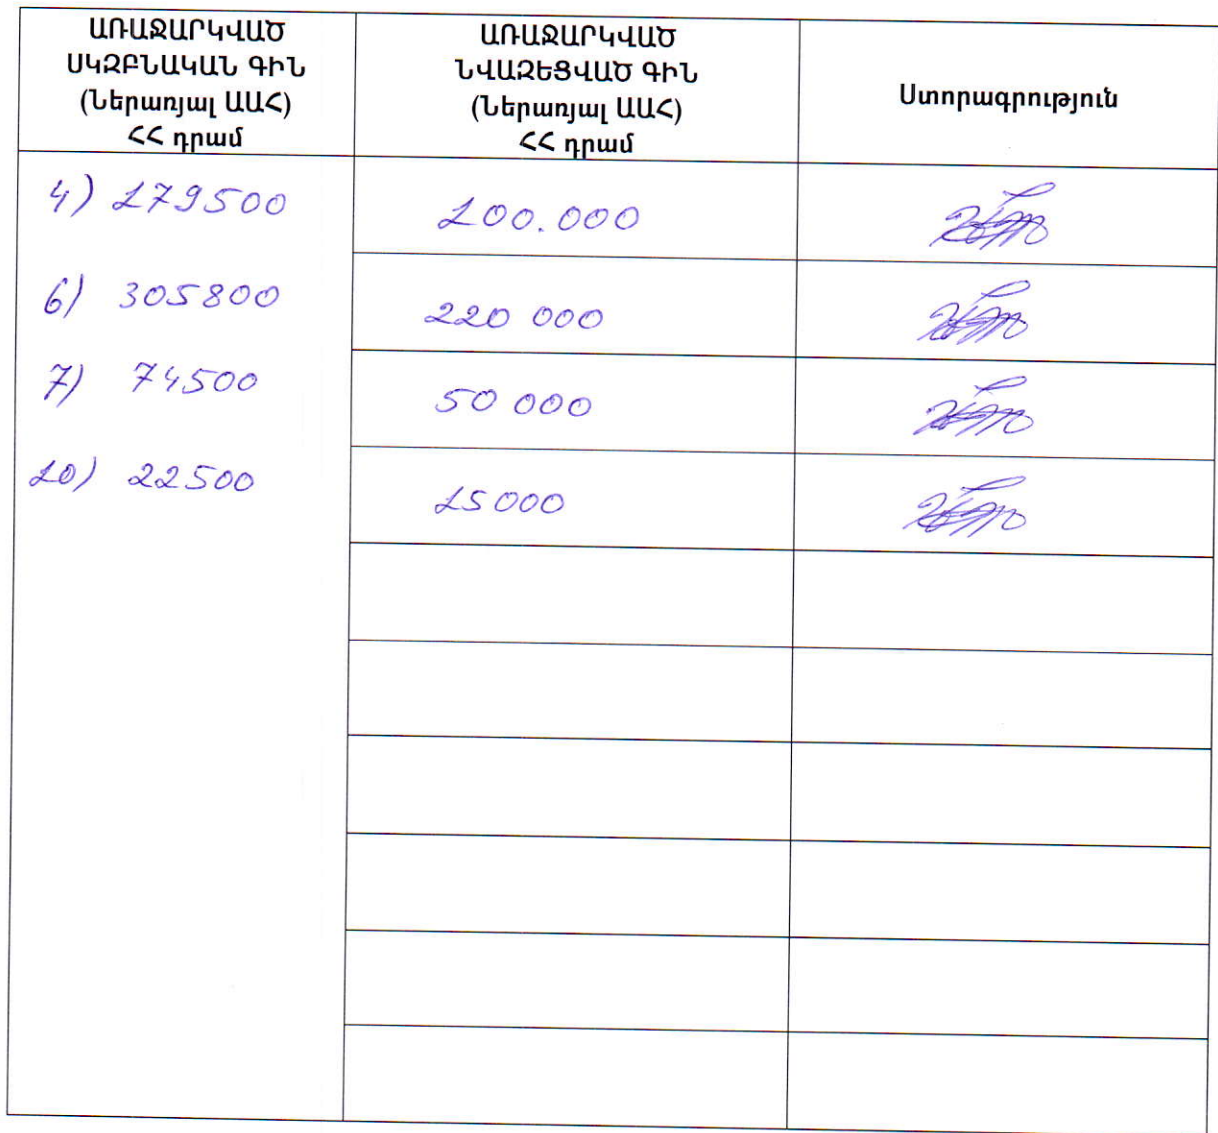 ԱՌԱՋԱՐԿՎԱԾ
ՍԿԶԲՆԱԿԱՆ ԳԻՆ
(Ներառյալ ԱԱՀ)
ՀՀ դրամ
ԱՌԱՋԱՐԿՎԱԾ
ՆՎԱԶԵՑՎԱԾ ԳԻՆ
(Ներառյալ ԱԱՀ)
ՀՀ դրամ
Ստորագրություն
4) 179500
100.000
6) 305800
220 000
7) 74500
50 000
10) 22500
15000